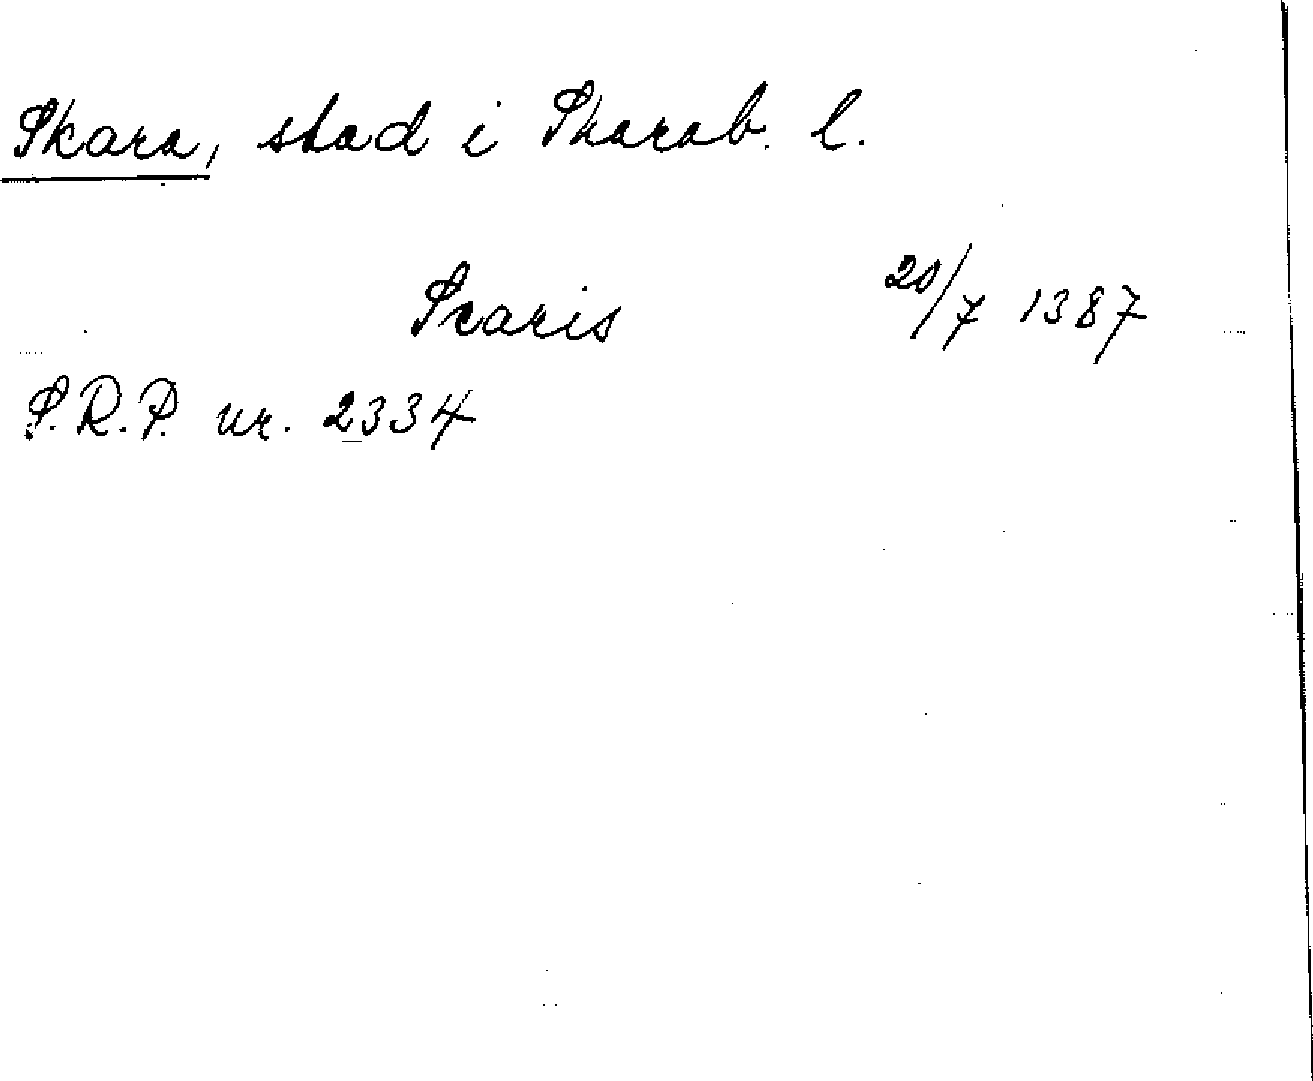 Skara, stad i Skarab. l.
Scaris 20/7 1387
S.R.P. nr. 2334